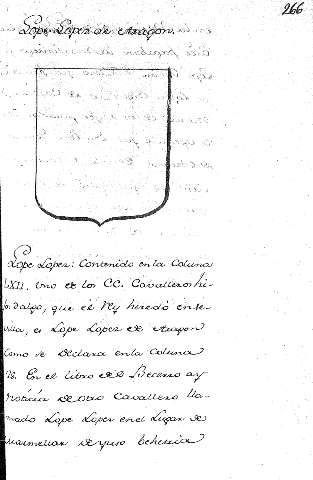 266
Lope Lopez de Aragon.
Lope Lopez: Contenido en la Coluna
LXII. Uno de los CC. Cavalleros hi-
josdalgo, que el Rey heredó en Se-
villa, es Lope Lopez de
como se declara en la Coluna
En el libro de Becerro ay
noticia de otro Cavallero lla-
mado Lope Lopez en el Lugar de
de yuso behetria